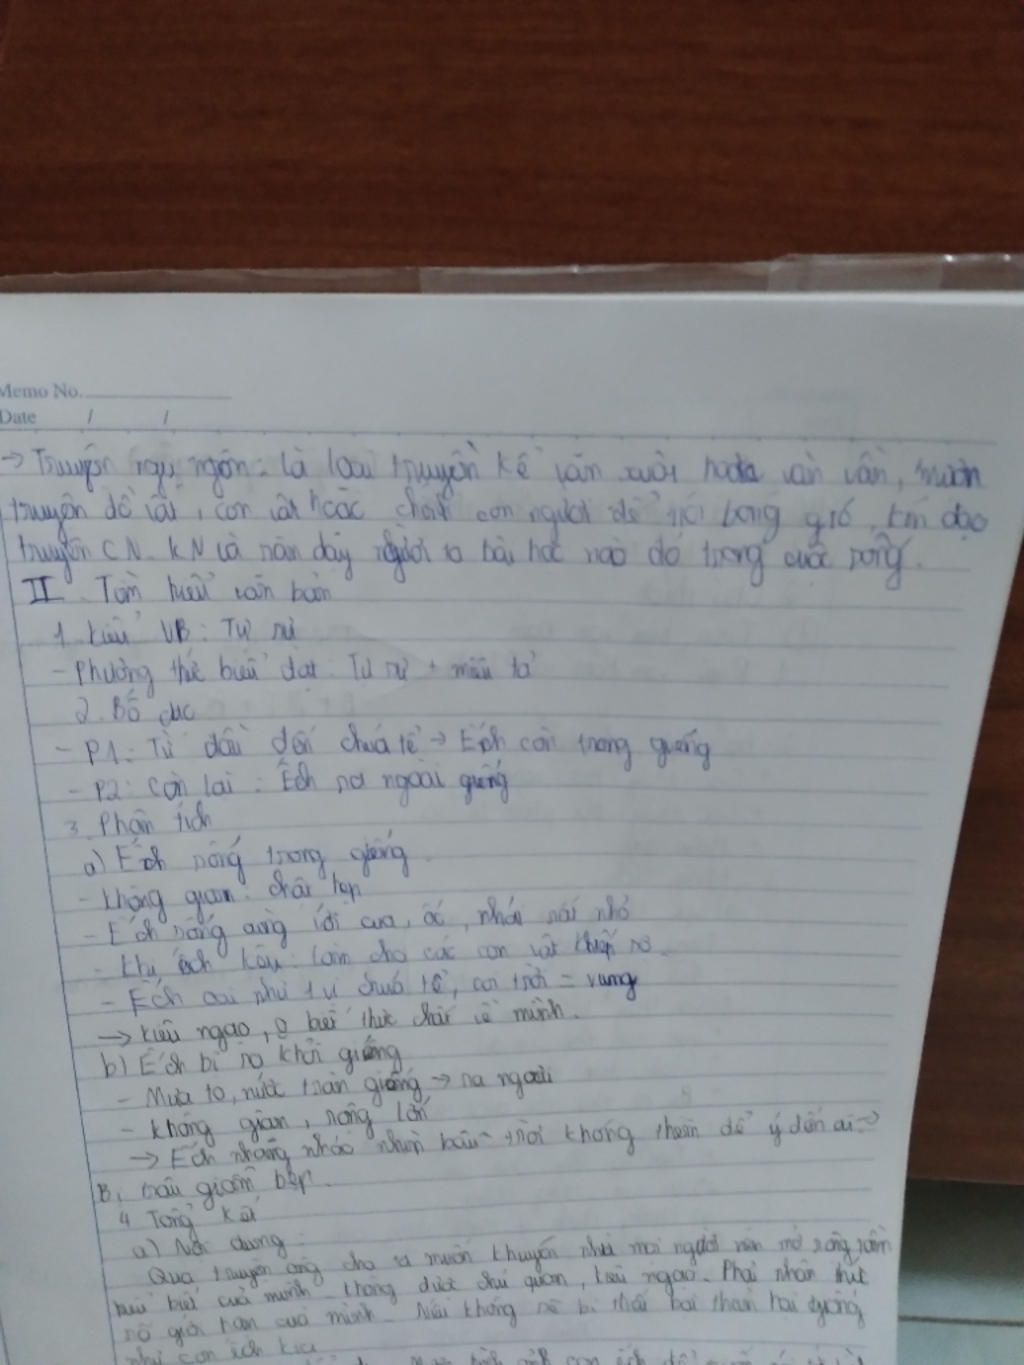 Memo No.
Date / /
→ Truyện ngụ ngôn: là loại truyện kể văn xuôi hoặc văn vần, mượn
truyện đồ vật, con vật hoặc chính con người để nói bóng gió, kín đáo
truyện CN. KN là răn dạy người ta bài học nào đó trong cuộc sống.
II. Tìm hiểu văn bản
1. Kiểu VB: Tự sự
- Phương thức biểu đạt: Tự sự + miêu tả
2. Bố cục
- P1: Từ đầu đến chúa tể → Ếch còn trong giếng
- P2: Còn lại: Ếch ra ngoài giếng
3. Phân tích
a) Ếch sống trong giếng
- Không gian: chật hẹp
- Ếch sống cùng với cua, ốc, nhái rất nhỏ
- Khi ếch kêu: làm cho các con vật khiếp sợ.
- Ếch oai như 1 vị chúa tể, coi trời = vung
→ Kiêu ngạo, o biết thực chất về mình.
b) Ếch bị ra khỏi giếng
- Mưa to, nước tràn giếng → ra ngoài
- Không gian, rộng lớn
→ Ếch nhâng nháo nhìn bầu trời không thèm để ý đến ai →
Bị trâu giẫm bẹp.
4 Tổng kết
a) Nội dung:
Qua truyện ông cha ta muốn khuyên nhủ mọi người nên mở rộng tầm
hiểu biết của mình. Không được chủ quan, kiêu ngạo. Phải nhận thức
rõ giới hạn của mình. Nếu không sẽ bị thất bại thảm hại giống
như con ếch kia